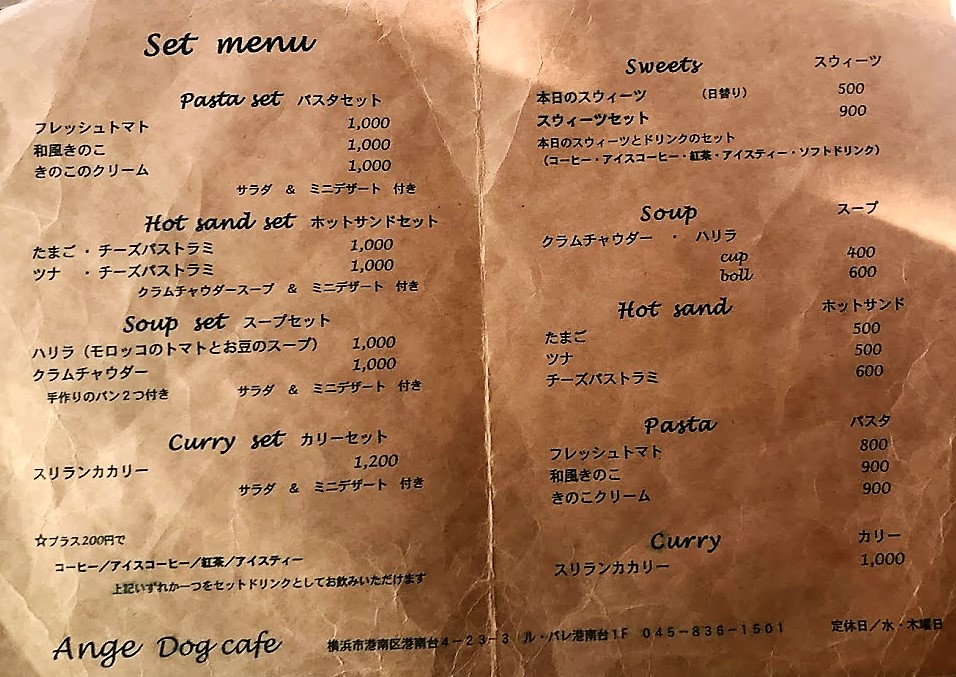 Set menu
Pasta set パスタセット
フレッシュトマト 1,000
和風きのこ 1,000
きのこのクリーム 1,000
サラダ & ミニデザート 付き
Hot sand set ホットサンドセット
たまご ・ チーズパストラミ 1,000
ツナ ・ チーズパストラミ 1,000
クラムチャウダースープ & ミニデザート 付き
Soup set スープセット
ハリラ（モロッコのトマトとお豆のスープ） 1,000
クラムチャウダー 1,000
手作りのパン２つ付き サラダ & ミニデザート 付き
Curry set カリーセット
スリランカカリー 1,200
サラダ & ミニデザート 付き
☆プラス200円で
コーヒー／アイスコーヒー／紅茶／アイスティー
上記いずれか一つをセットドリンクとしてお飲みいただけます
Sweets スウィーツ
本日のスウィーツ （日替り） 500
スウィーツセット 900
本日のスウィーツとドリンクのセット
（コーヒー・アイスコーヒー・紅茶・アイスティー・ソフトドリンク）
Soup スープ
クラムチャウダー ・ ハリラ
cup 400
boll 600
Hot sand ホットサンド
たまご 500
ツナ 500
チーズパストラミ 600
Pasta パスタ
フレッシュトマト 800
和風きのこ 900
きのこクリーム 900
Curry カリー
スリランカカリー 1,000
Ange Dog cafe 横浜市港南区港南台４－２３－３ ル・パレ港南台１F ０４５－８３６－１５０１ 定休日／水・木曜日